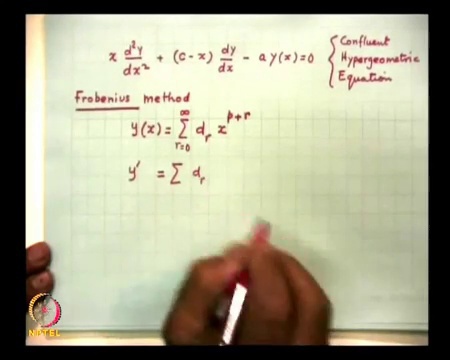 x d²y/dx² + (c-x) dy/dx - a y(x) = 0 { Confluent Hypergeometric Equation
Frobenius method
y(x) = ∑_{r=0}^{∞} d_r x^{p+r}
y' = ∑ d_r
NPTEL